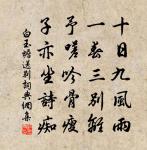 十日九風雨
一春三別離
予嗟吟骨瘦
子亦坐詩痴
白玉蟾送別詞典網集